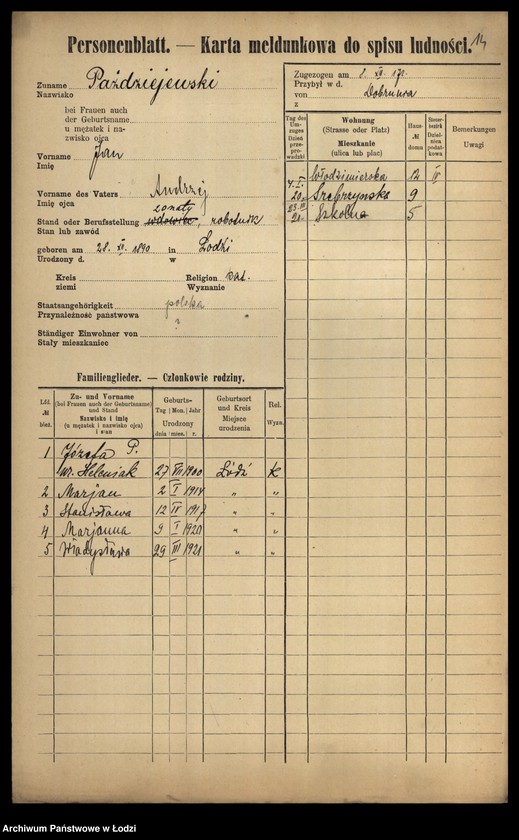 Personenblatt. — Karta meldunkowa do spisu ludności. 14
Zuname Paździejewski
Nazwisko
bei Frauen auch
der Geburtsname
u mężatek i na-
zwisko ojca
Vorname Jan
Imię
Vorname des Vaters Andrzej
Imię ojca żonaty
Stand oder Berufsstellung wdowiec, robotnik
Stan lub zawód
geboren am 28. XII. 1890 in Łodzi
Urodzony d. w
Kreis Religion kat.
ziemi Wyznanie
Staatsangehörigkeit polska
Przynależność państwowa "
Ständiger Einwohner von ?
Stały mieszkaniec
Zugezogen am 8. XII.
Przybył w d.
von
z
Tag des Um-zuges Dzień prze-prowadzki
Wohnung
(Strasse oder Platz)
Mieszkanie
(ulica lub plac)
Haus- № domu
Steuer-bezirk Dzielnica podat-kowa
Bemerkungen
Uwagi
Włodzimierska 12 IV
4. I. 20. Srebrzyńska 9
21. Szkolna 5
Familienglieder. — Członkowie rodziny.
Lfd. № bież.
Zu- und Vorname
(bei Frauen auch der Geburtsname)
und Stand
Nazwisko i imię
(u mężatek i nazwisko ojca)
i stan
Geburts-
Tag Mon. Jahr
Urodzony
dnia mies. r.
Geburtsort
und Kreis
Miejsce
urodzenia
Rel.
Wyzn.
1 Józefa P.
ur. Heleniak 27 III 1900 Łódź k
2 Marjan 2 I 1914 " "
3 Stanisława 12 IV 1917 " "
4 Marjanna 9 I 1920 " "
5 Władysława 29 III 1921 " "
Archiwum Państwowe w Łodzi